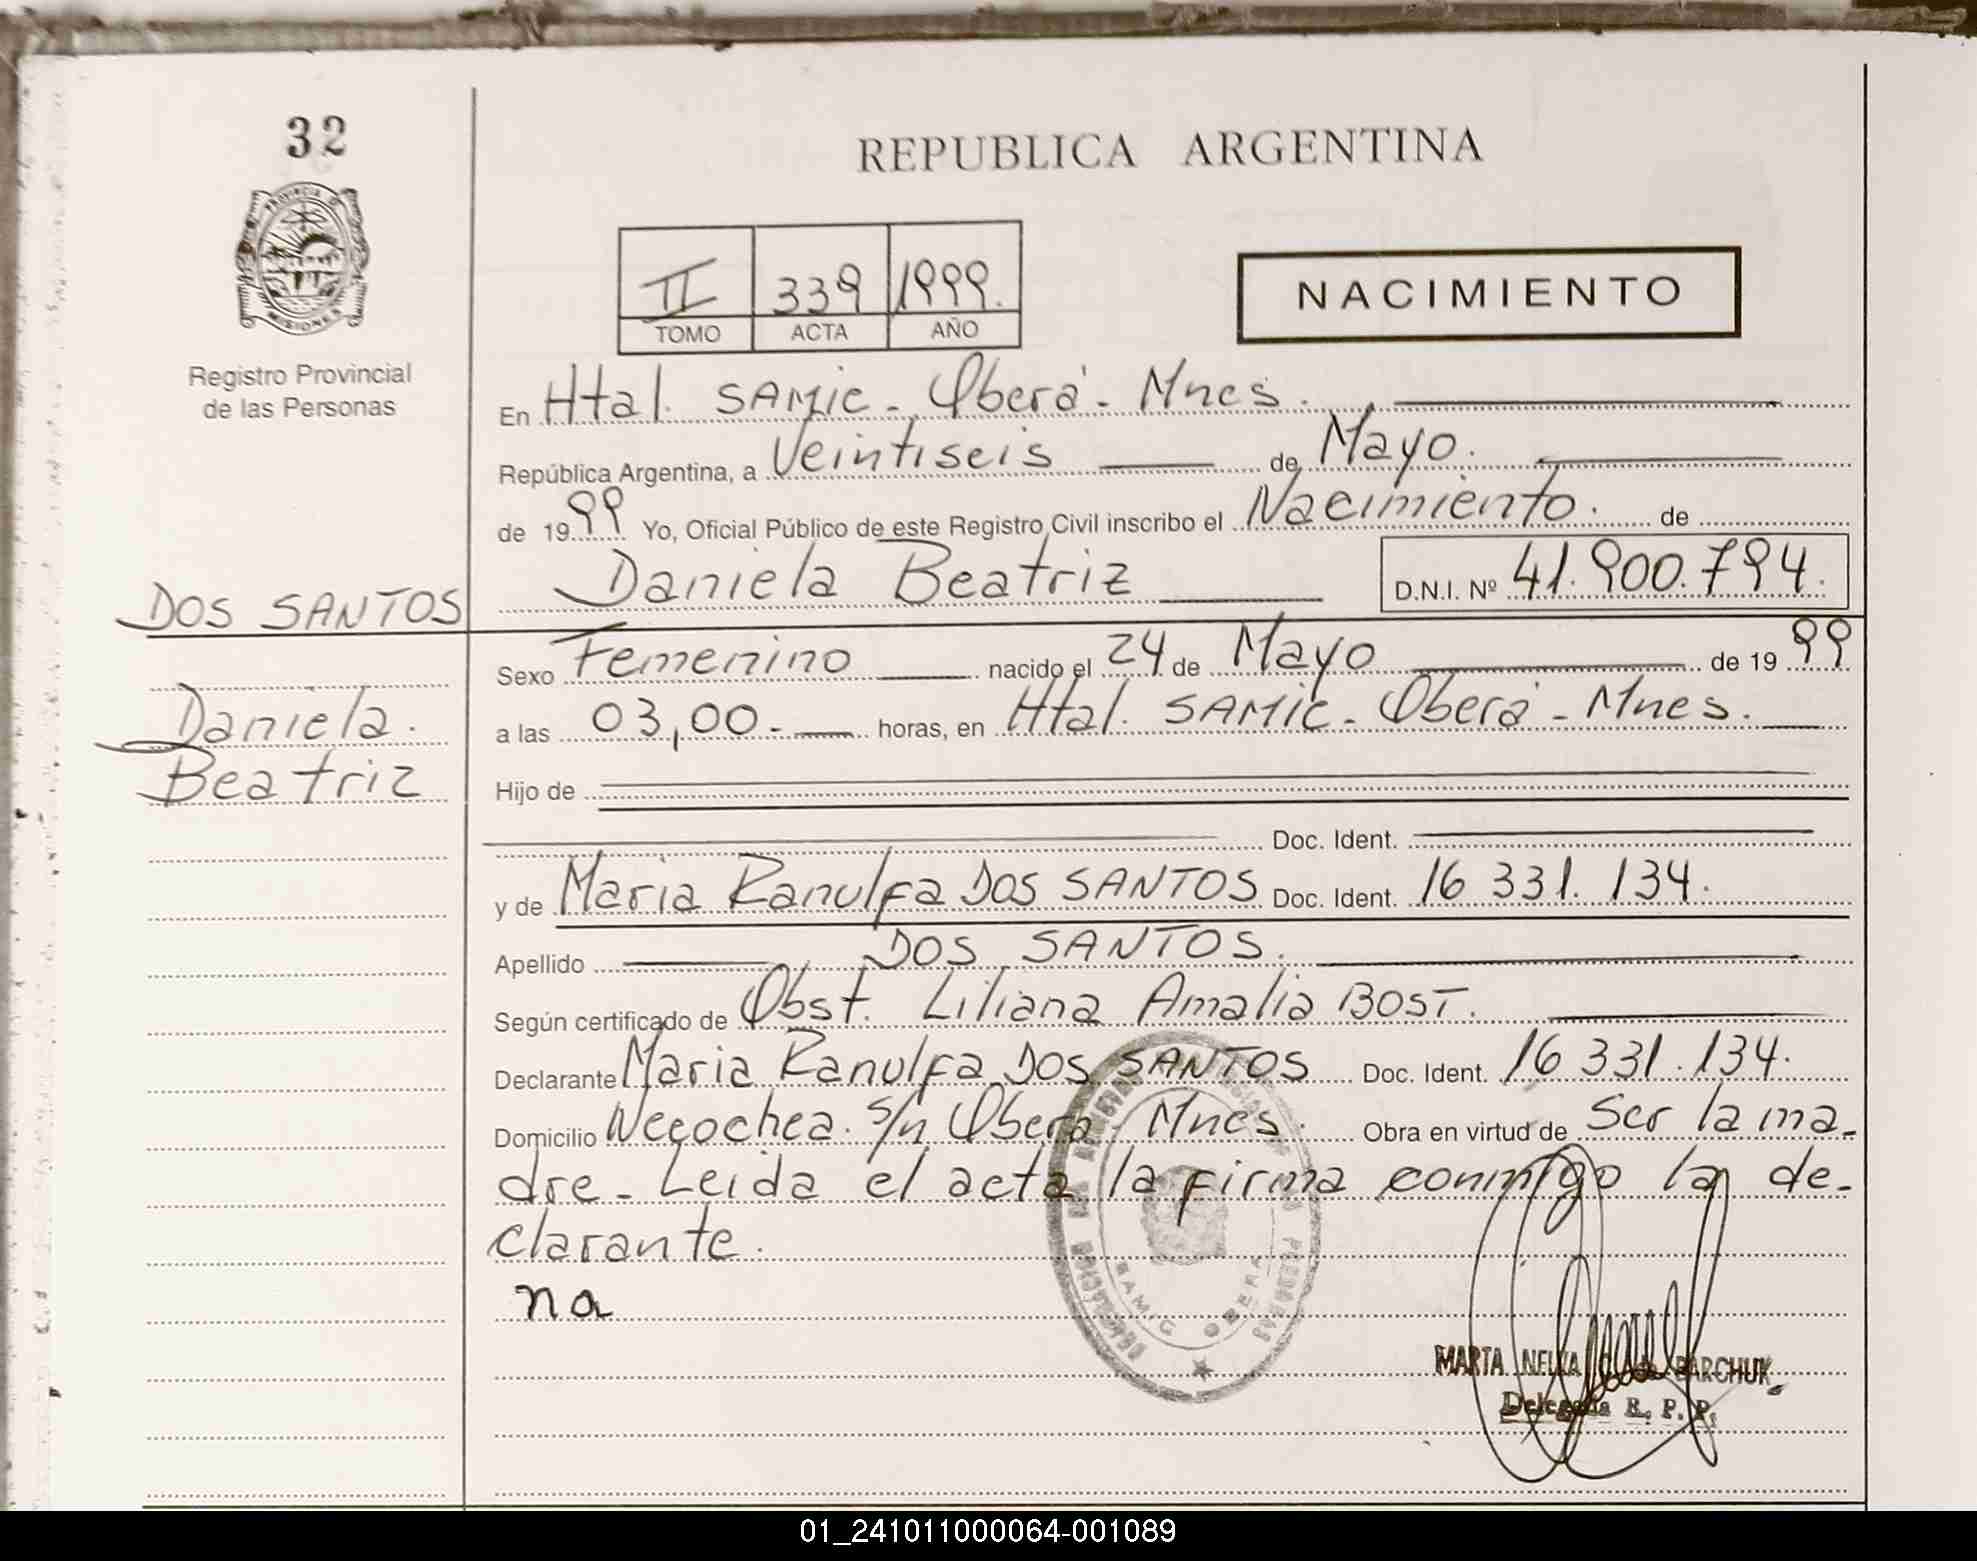 32
REPUBLICA ARGENTINA
PROVINCIA D
MISIONES
II 339 1999.
TOMO ACTA AÑO
NACIMIENTO
Registro Provincial
de las Personas
En Htal. SAMic - Oberá - Mnes.
República Argentina, a Veintiseis de Mayo.
de 1999 Yo, Oficial Público de este Registro Civil inscribo el Nacimiento. de
Daniela Beatriz D.N.I. Nº 41.900.794.
DOS SANTOS
Daniela.
Beatriz
Sexo Femenino nacido el 24 de Mayo de 1999
a las 03,00- horas, en Htal. SAMic - Oberá - Mnes.
Hijo de
Doc. Ident.
y de Maria Ranulfa DOS SANTOS Doc. Ident. 16 331. 134.
Apellido DOS SANTOS.
Según certificado de Obst. Liliana Amalia BOST.
Declarante Maria Ranulfa DOS SANTOS Doc. Ident. 16 331. 134.
Domicilio Necochea. s/n Oberá Mnes. Obra en virtud de Ser la ma-
dre - Leida el acta la firma conmigo la de-
clarante.
na
SAMIC OBERA
MARTA BARCHUK
Delegada R. P. P.
01_241011000064-001089